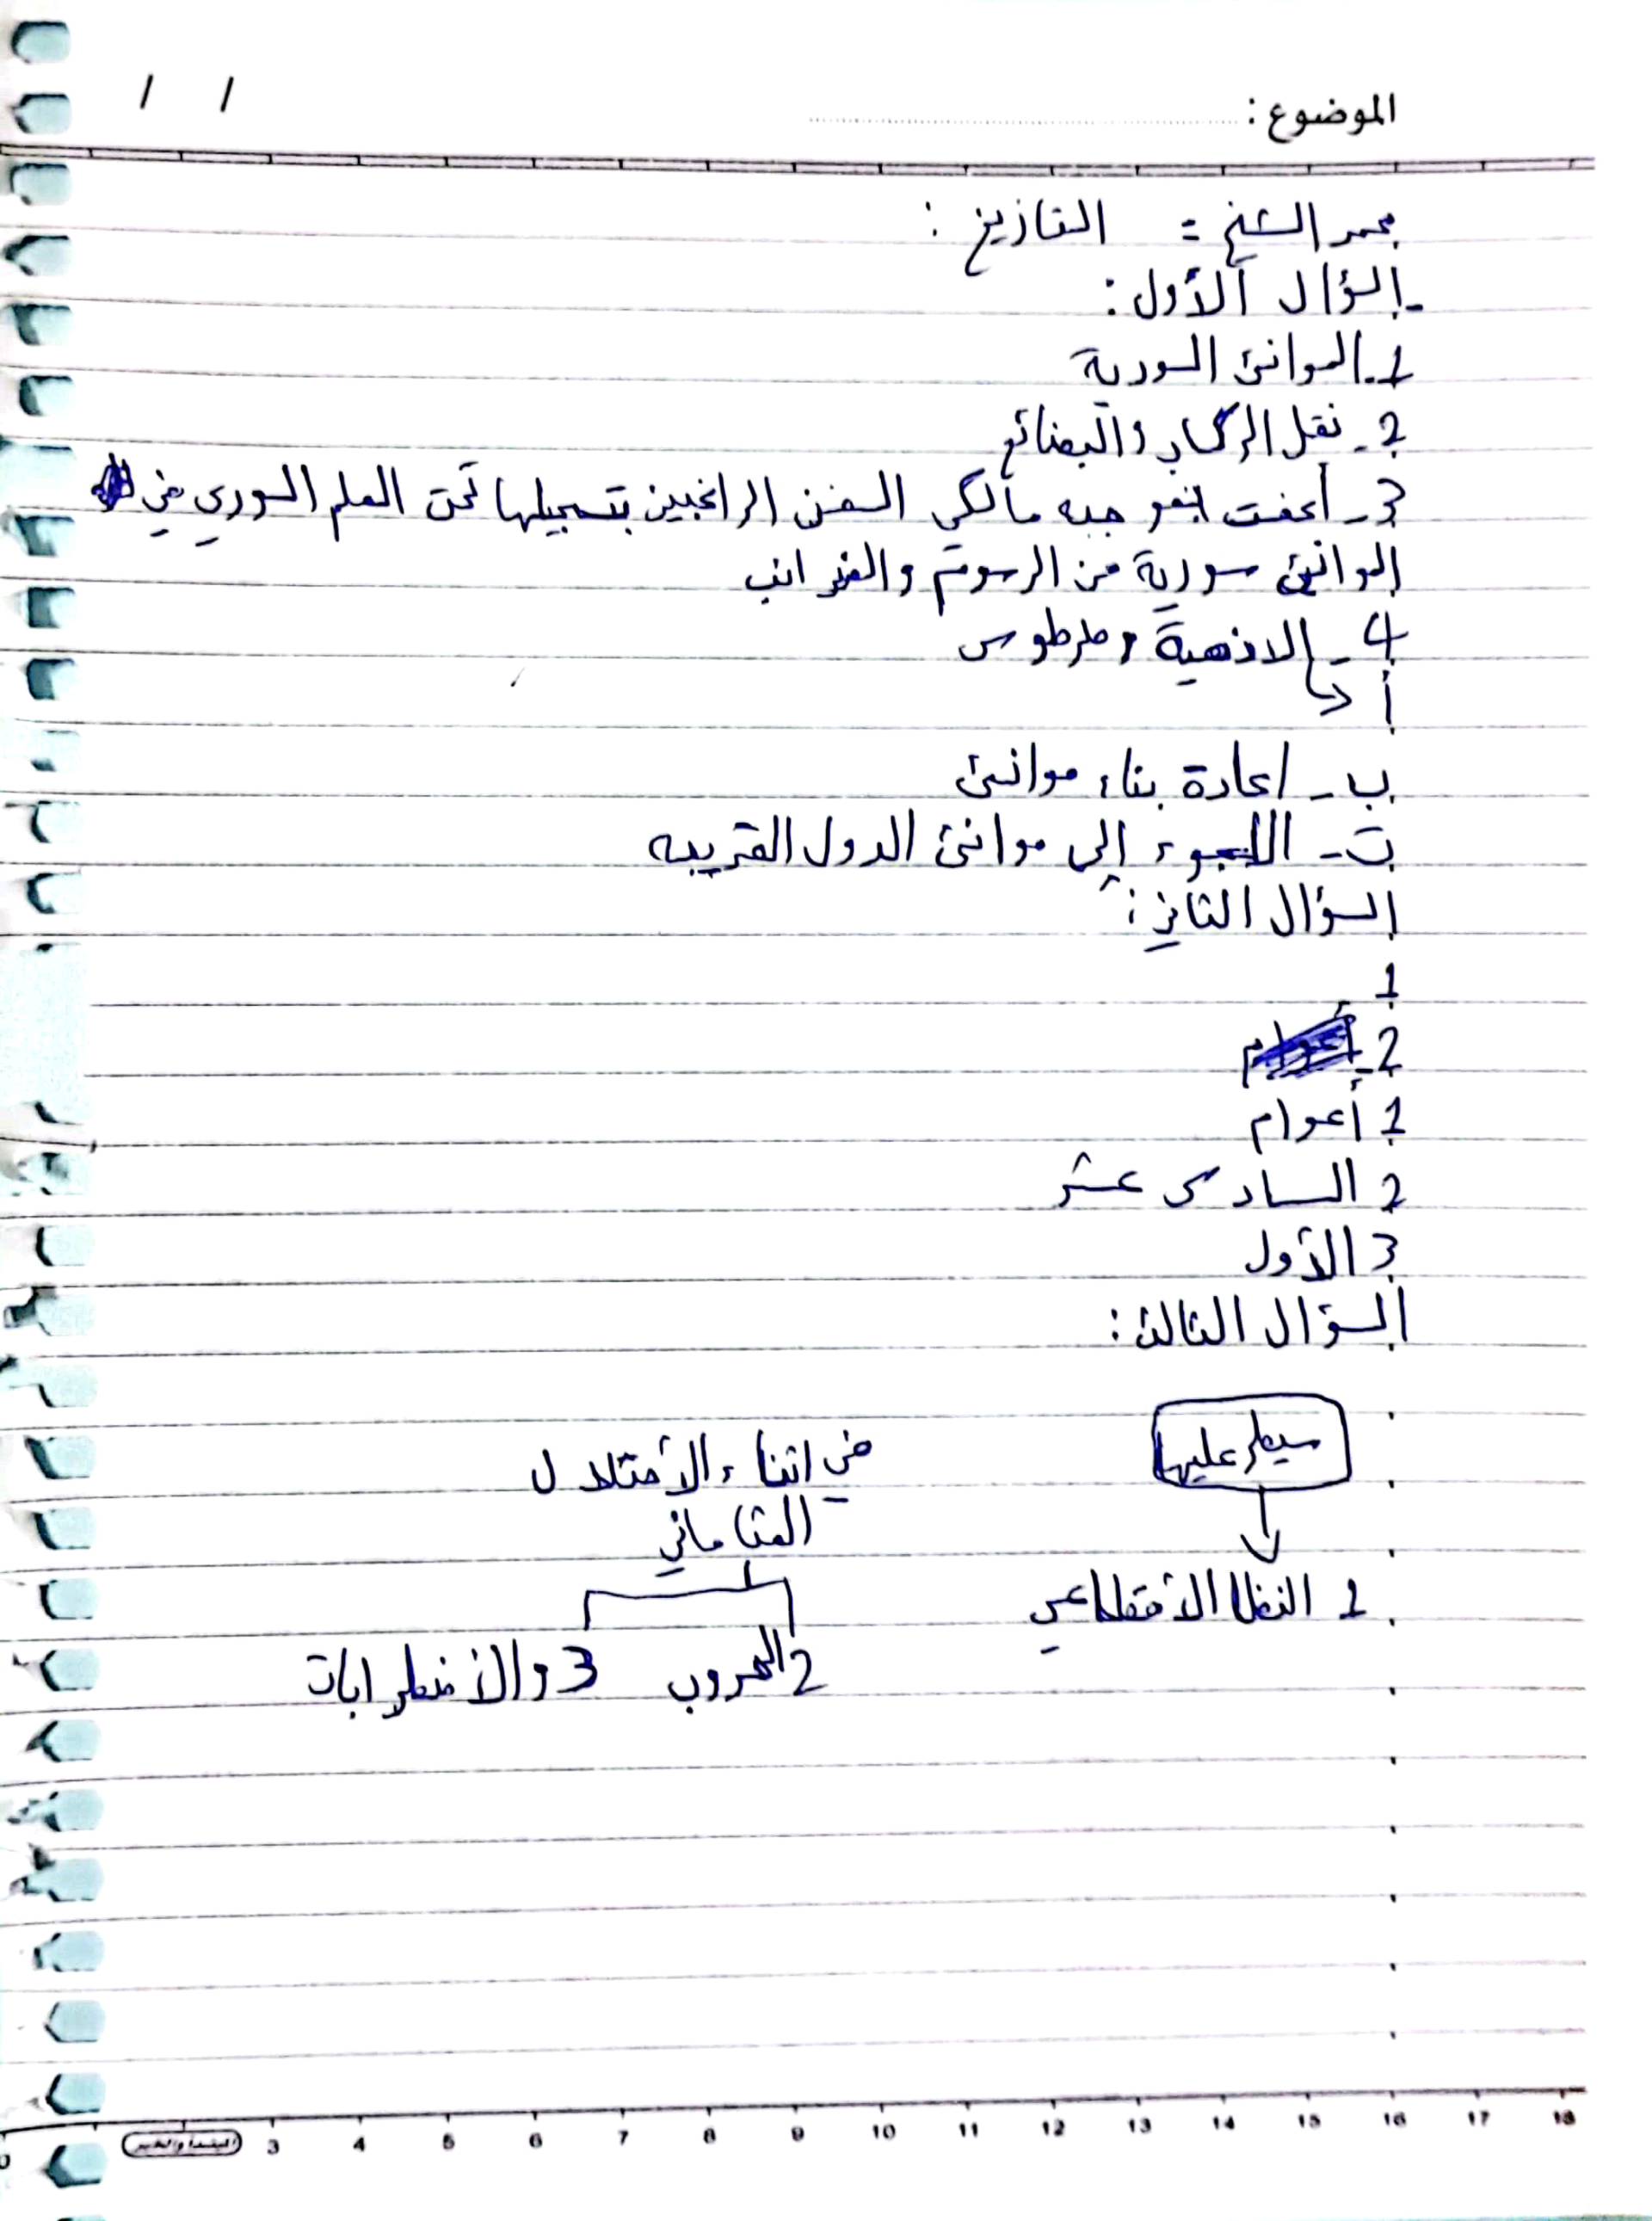 الموضوع :
/ /
محمد الشيخ = التازيخ :
- السؤال الأول :
1- الموانئ السورية
2- نقل الركاب والبضائع
3- أعفت مالكي السفن الراغبين بتسجيلها تحت العلم السوري في
الموانئ سورية من الرسوم والضرائب
4- الاذقية وطرطوس
أ
ب- اعادة بناء موانئ
ت- اللجوء إلى موانئ الدول القريبه
السؤال الثاني :
1
2-
1 أعوام
2 السادس عشر
3 الأول
السؤال الثالث :
سيطر عليها
في اثناء الأحتلال
العثاماني
1 النظا الأقطاعي
2 الحروب 3 والأضطرابات
المبتدأ والخبر 3 4 5 6 7 8 9 10 11 12 13 14 15 16 17 18